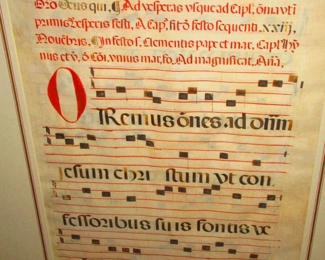 Deus qui. Ad vesperas usque ad Capl. om̄a vt ī
primis vesperis festi. A Cap. fit ō festo sequenti. xxiij.
Nouēbris. In festo s. Clementis pape et mar. Capl. hȳ
nus et ꝟ. ō Cōi. vnius mar. fo. Ad magnificat. Añā.
OREMUS ōnes ad dnm̄
Jesum chri stum vt con
fessoribus suis fontis ve